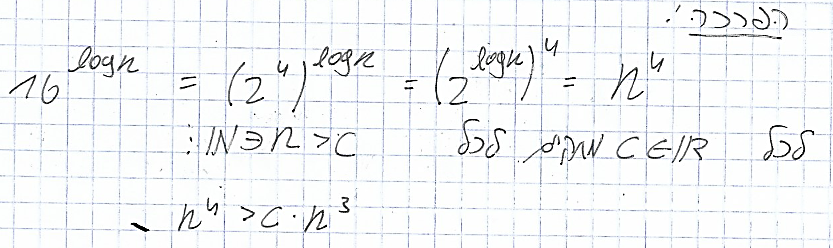 הפרכה:
16^{log n} = (2^4)^{log n} = (2^{log n})^4 = n^4
לכל C ∈ ℝ מתקיים לכל ℕ∋n > C :
n^4 > C · n^3